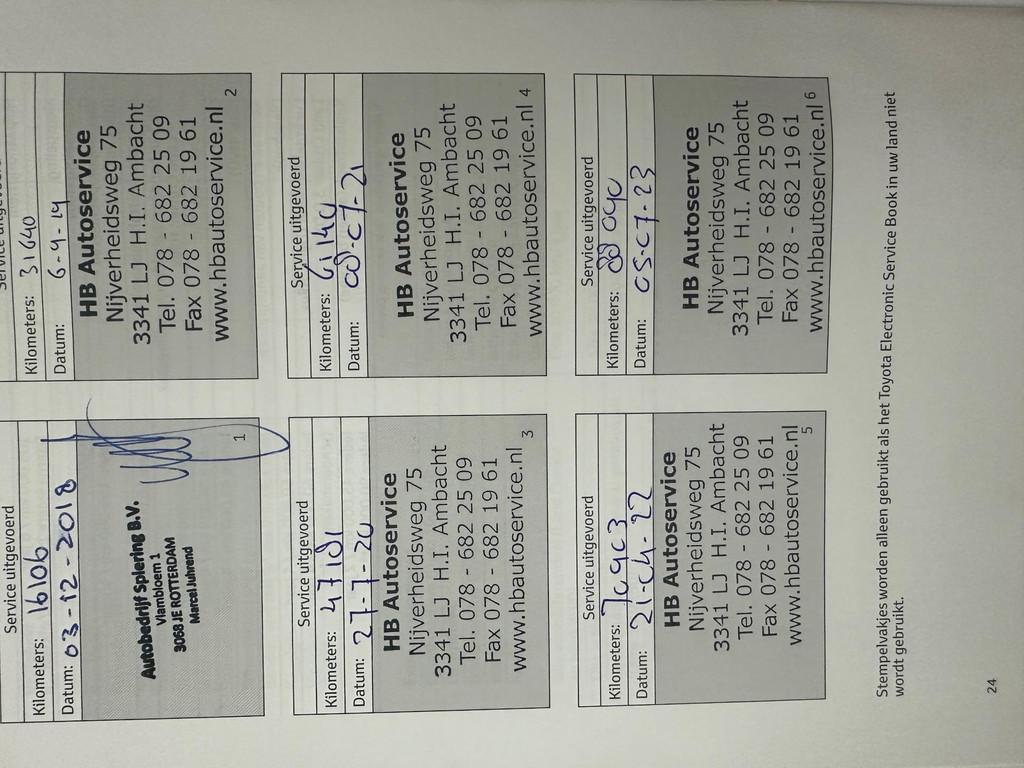 Service uitgevoerd
Kilometers: 16106
Datum: 03-12-2018
Autobedrijf Spiering B.V.
Vlambloem 1
3068 JE ROTTERDAM
Marcel Juhrend
1
Service uitgevoerd
Kilometers: 31640
Datum: 6-9-19
HB Autoservice
Nijverheidsweg 75
3341 LJ H.I. Ambacht
Tel. 078 - 682 25 09
Fax 078 - 682 19 61
www.hbautoservice.nl
2
Service uitgevoerd
Kilometers: 47181
Datum: 27-7-20
HB Autoservice
Nijverheidsweg 75
3341 LJ H.I. Ambacht
Tel. 078 - 682 25 09
Fax 078 - 682 19 61
www.hbautoservice.nl
3
Service uitgevoerd
Kilometers:
Datum: 08-07-21
HB Autoservice
Nijverheidsweg 75
3341 LJ H.I. Ambacht
Tel. 078 - 682 25 09
Fax 078 - 682 19 61
www.hbautoservice.nl
4
Service uitgevoerd
Kilometers: 76903
Datum: 21-04-22
HB Autoservice
Nijverheidsweg 75
3341 LJ H.I. Ambacht
Tel. 078 - 682 25 09
Fax 078 - 682 19 61
www.hbautoservice.nl
5
Service uitgevoerd
Kilometers: 88090
Datum: 05-07-23
HB Autoservice
Nijverheidsweg 75
3341 LJ H.I. Ambacht
Tel. 078 - 682 25 09
Fax 078 - 682 19 61
www.hbautoservice.nl
6
Stempelvakjes worden alleen gebruikt als het Toyota Electronic Service Book in uw land niet
wordt gebruikt.
24